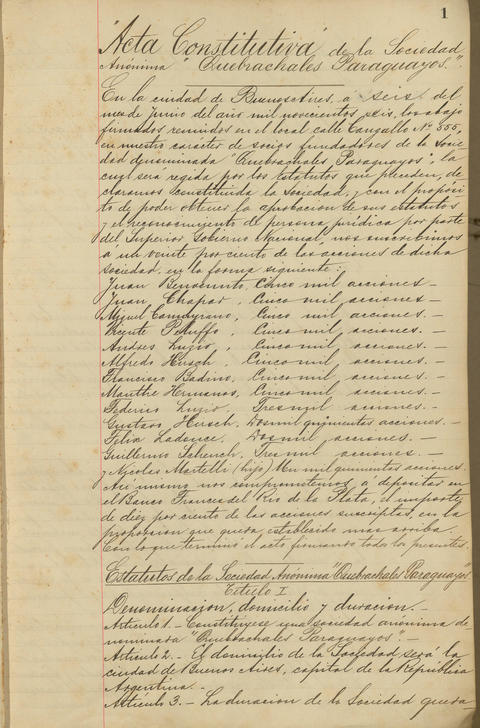 1
"Acta Constitutiva" de la Sociedad
Anónima "Quebrachales Paraguayos".
En la ciudad de Buenos Aires, a seis del
mes de Junio del año mil novecientos seis, los abajo
firmados reunidos en el local calle Cangallo Nº 555,
en nuestro carácter de socios fundadores de la Socie
dad denominada "Quebrachales Paraguayos", la
cual será regida por los Estatutos que preceden, de
claramos constituida la sociedad, y con el propósi
to de poder obtener la aprobacion de sus estatutos
y el reconocimiento de persona jurídica por parte
del Superior Gobierno Nacional, nos suscribimos
a un veinte por ciento de las acciones de dicha
sociedad, en la forma siguiente:
Juan Benvenuto Cinco mil acciones —
Juan Chapar, Cinco mil acciones —
Miguel Cinco mil acciones. —
Vicente Peluffo, Cinco mil acciones. —
Andres Cinco mil acciones. —
Alfredo Hirsch, Cinco mil acciones. —
Francisco Badino, Cinco mil acciones. —
Hermanos, Cinco mil acciones. —
Federico Tres mil acciones. —
Gustavo Dos mil quinientas acciones. —
Felix Dos mil acciones. —
Guillermo Tres mil acciones. —
y Nicolas Martelli (hijo) Un mil quinientas acciones.
Así mismo nos comprometemos a depositar en
el Banco Frances del Rio de la Plata, el importe
de diez por ciento de las acciones suscriptas, en la
proporcion que queda establecido mas arriba.
Con lo que terminó el acto firmando todos los presentes.
Estatutos de la Sociedad Anónima "Quebrachales Paraguayos"
Titulo I
Denominacion, domicilio y duracion. —
Artículo 1. — Constitúyese una sociedad anónima de
nominada "Quebrachales Paraguayos". —
Artículo 2. — El domicilio de la Sociedad será la
ciudad de Buenos Aires, capital de la República
Argentina. —
Artículo 3. — La duracion de la Sociedad queda